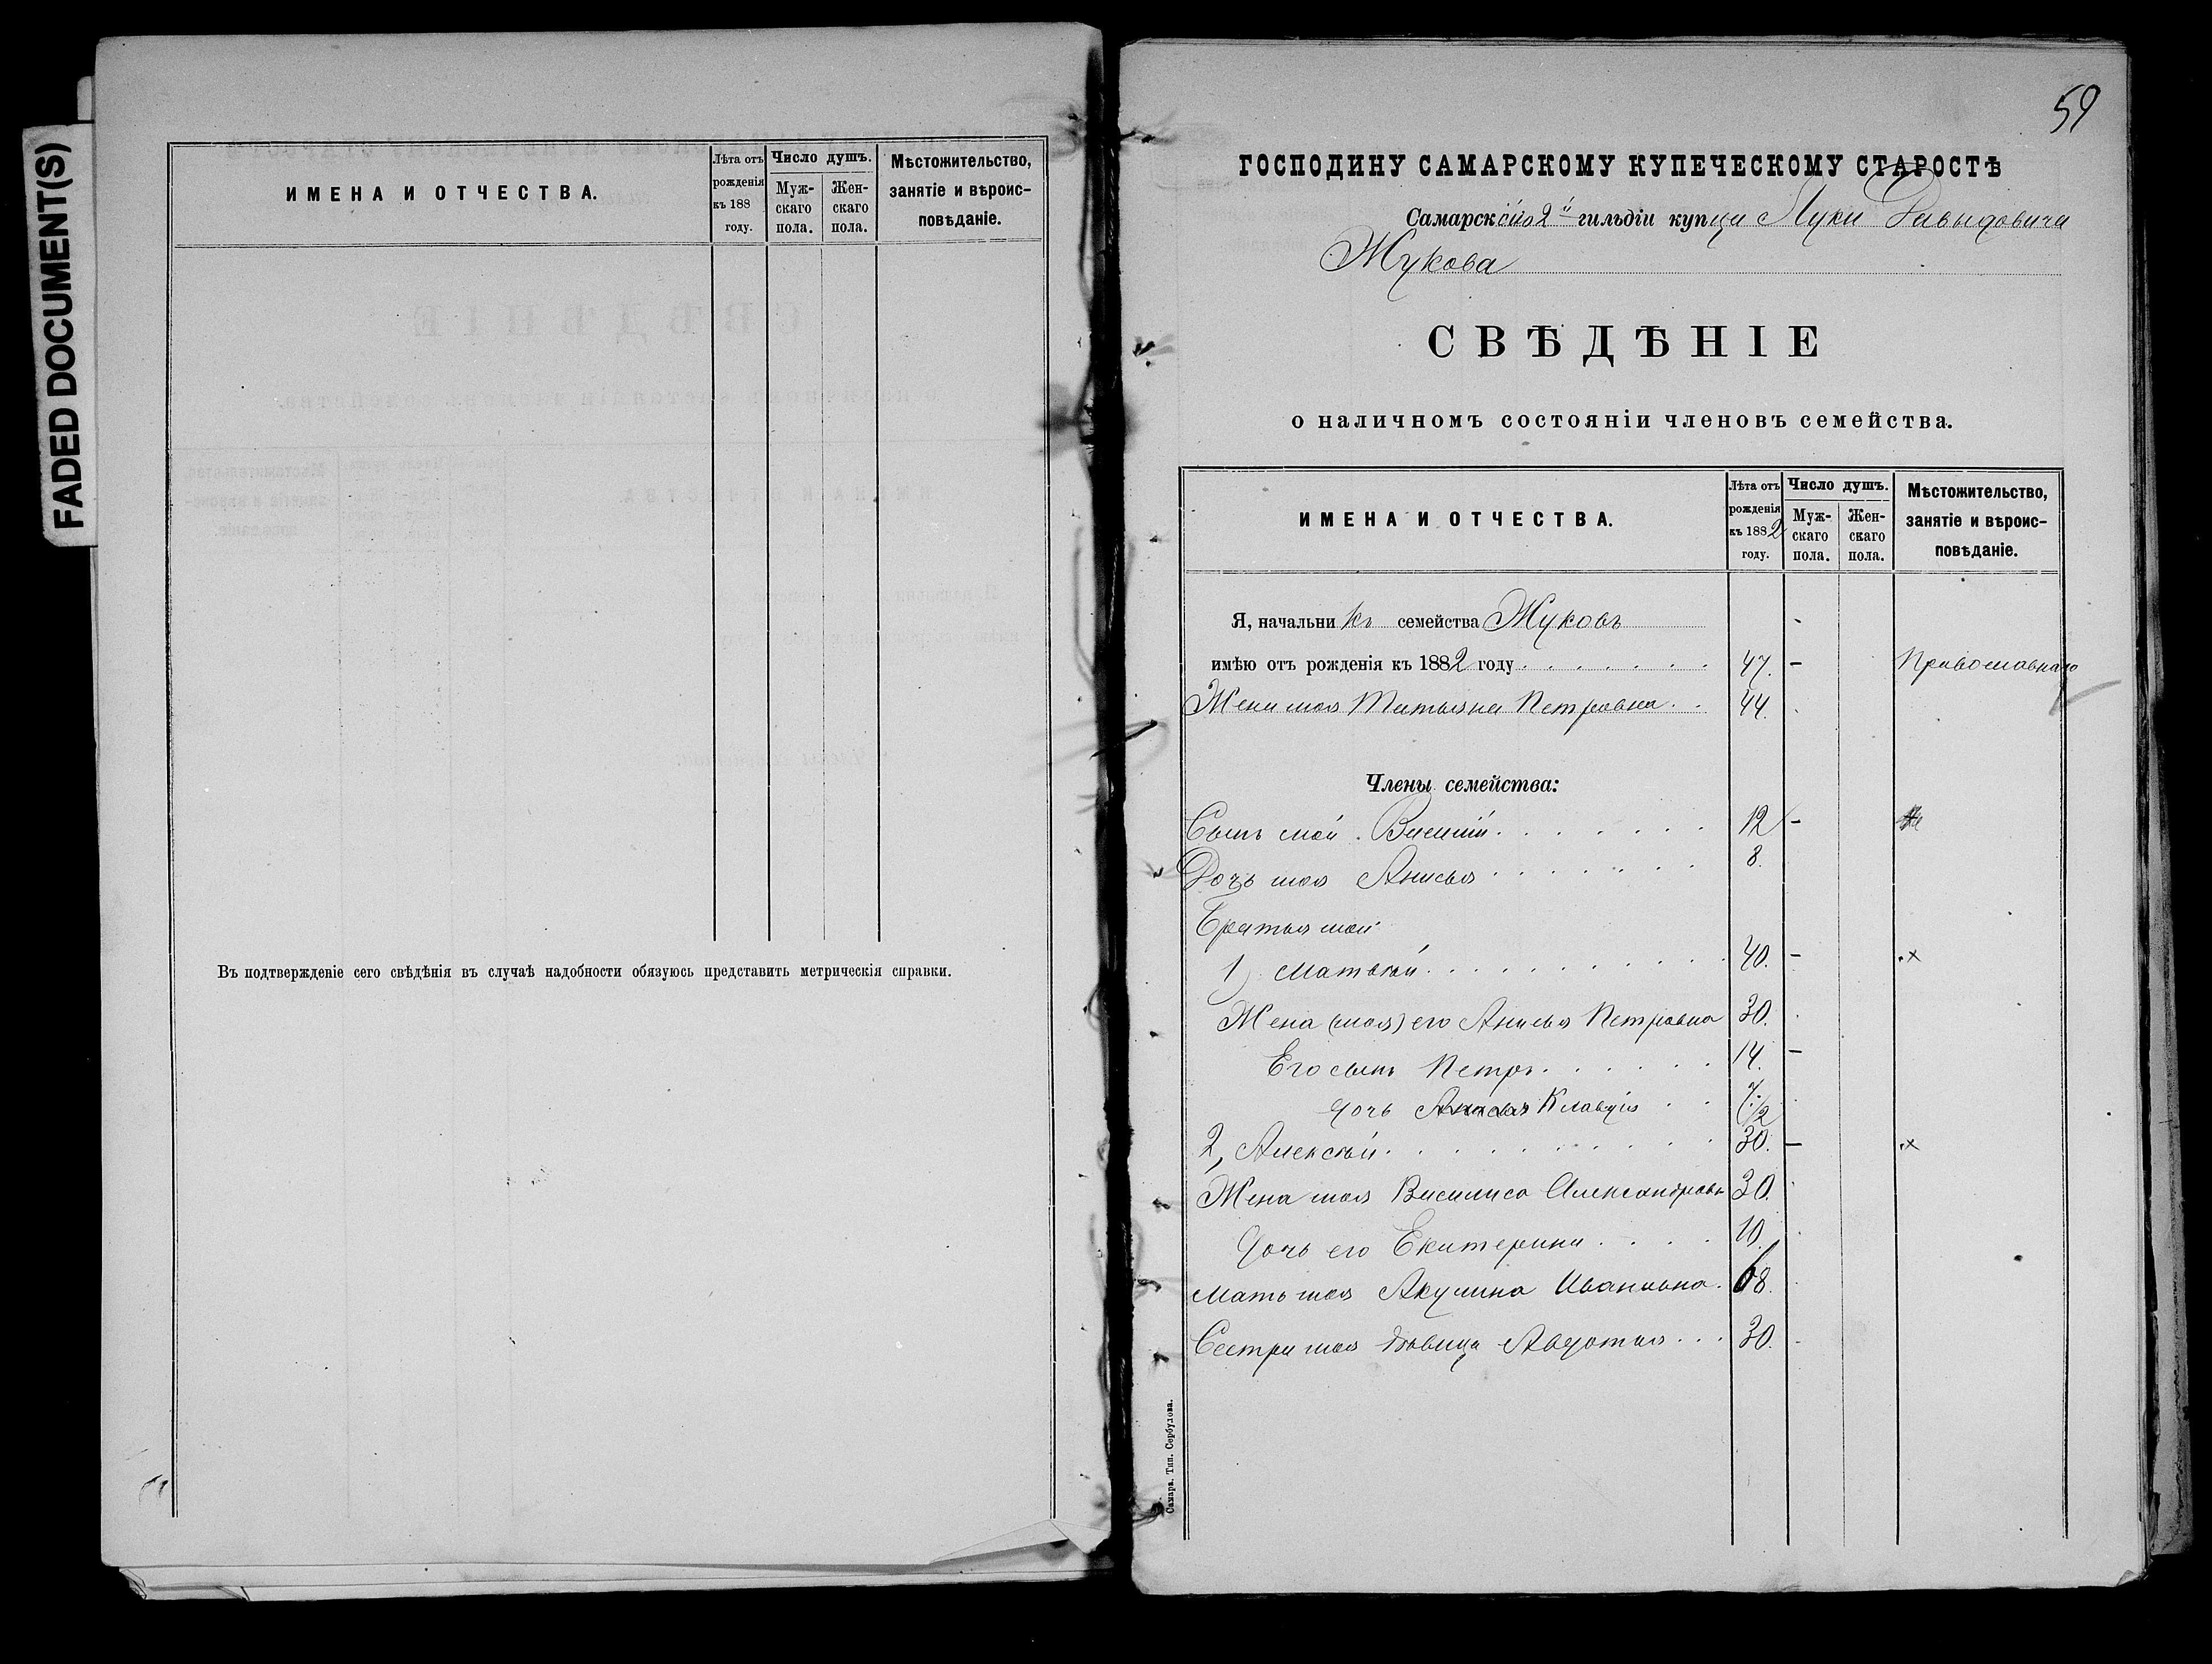 FADED DOCUMENT(S)
ИМЕНА И ОТЧЕСТВА.
Лѣта отъ рожденія къ 188 году.
Число душъ.
Мужскаго пола.
Женскаго пола.
Мѣстожительство, занятіе и вѣроисповѣданіе.
Въ подтвержденіе сего свѣдѣнія въ случаѣ надобности обязуюсь представить метрическія справки.
59
ГОСПОДИНУ САМАРСКОМУ КУПЕЧЕСКОМУ СТАРОСТѢ
Самарскаго 2й гильдіи купца Луки Давыдовича
Жукова
СВѢДѢНІЕ
о наличномъ состояніи членовъ семейства.
ИМЕНА И ОТЧЕСТВА.
Лѣта отъ рожденія къ 1882 году.
Число душъ.
Мужскаго пола.
Женскаго пола.
Мѣстожительство, занятіе и вѣроисповѣданіе.
Я, начальникъ семейства Жуковъ -
имѣю отъ рожденія къ 1882 году 47. - Православнаго
Жена моя Татьяна Петровна 44.
Члены семейства:
Сынъ мой Василій 12 -
Дочь моя Анисья 8.
Братья мои
1) Матвѣй 40. - х
Жена (моя) его Анисья Петровна 30.
Его сынъ Петръ 14. -
дочь Анисья Клавдія 1/2
2, Алексѣй 30. - х
Жена моя Василиса Александровн 30.
Дочь его Екатерина 10.
Мать моя Акулина Ивановна 68.
Сестра моя дѣвица Авдотья 30.
Самара. Тип. Сербулова.